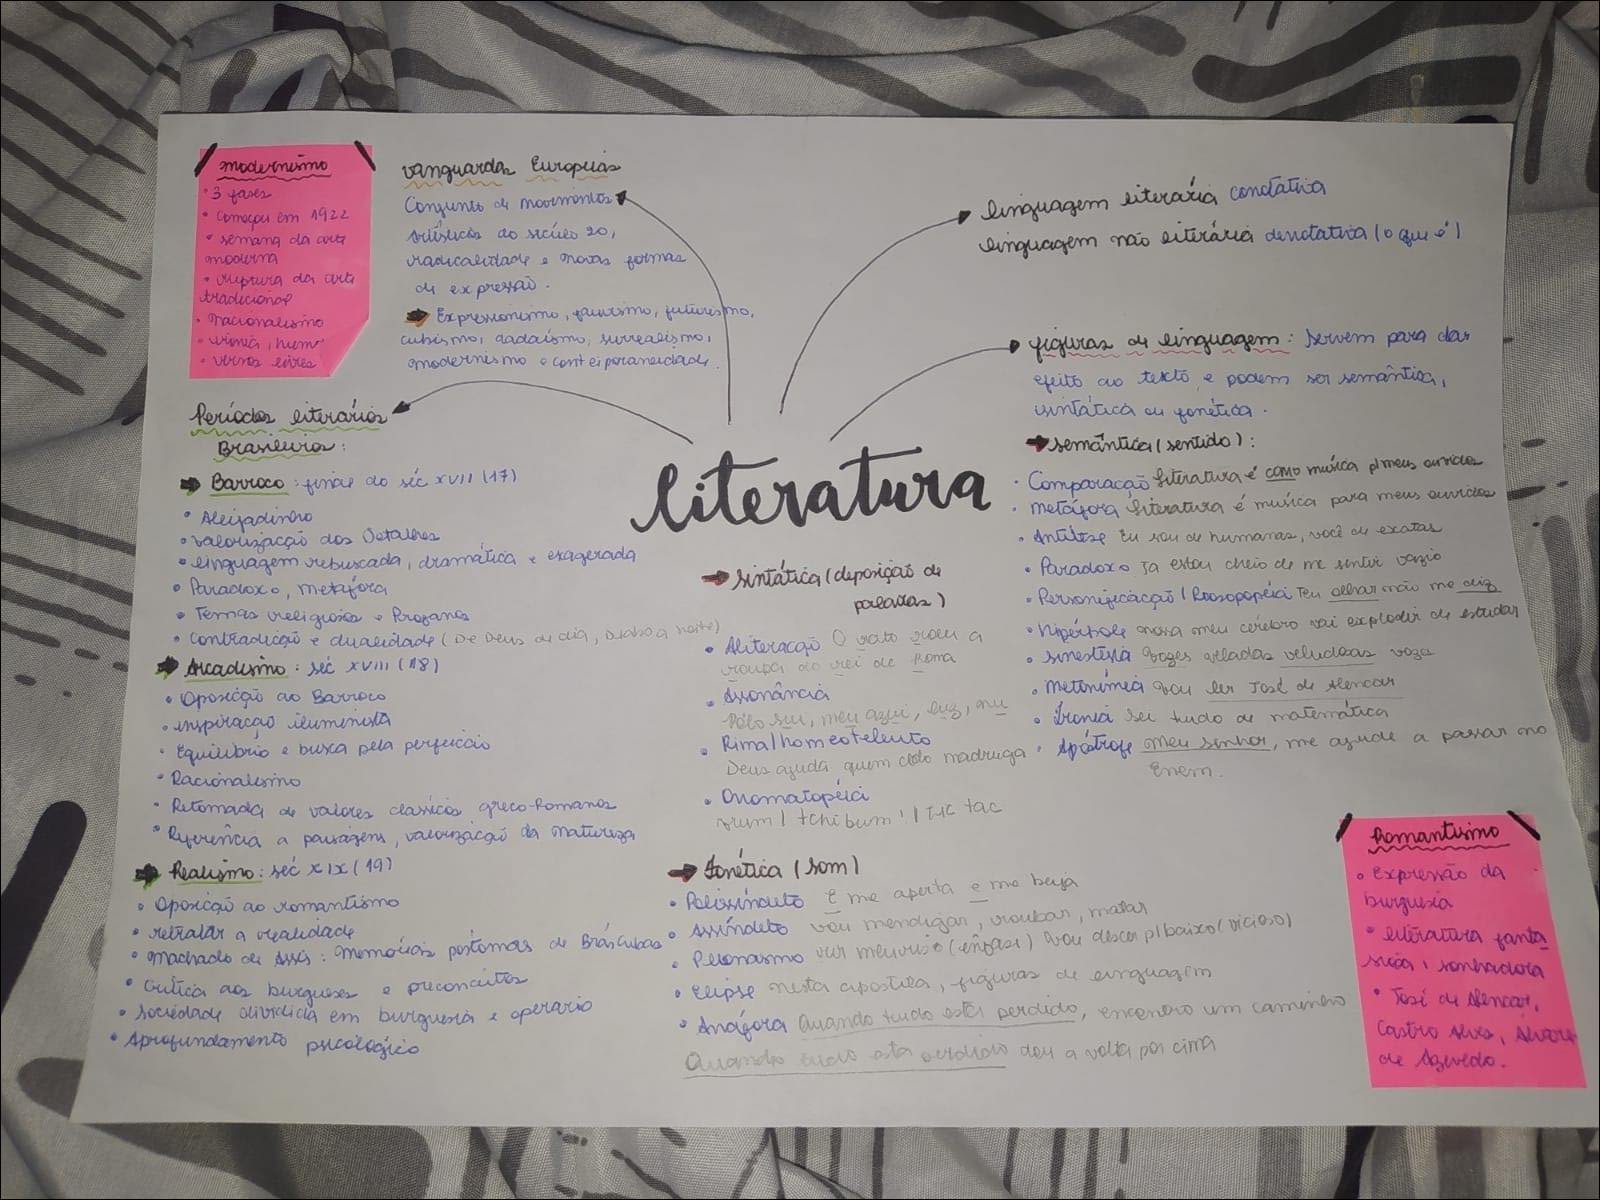 modernismo
• 3 fases
• Começou em 1922
• semana da arte
moderna
• ruptura da arte
tradicional
• nacionalismo
• ironia, humor
• versos livres
vanguardas Europeias
Conjunto de movimentos
artísticos do século 20,
radicalidade e novas formas
de expressão.
Expressionismo, fauvismo, futurismo,
cubismo, dadaísmo, surrealismo,
modernismo e contemporaneidade.
linguagem literária conotativa
linguagem não literária denotativa (o que é)
figuras de linguagem: servem para dar
efeito ao texto, e podem ser semântica,
sintática ou fonética.
semântica (sentido):
• Comparação literatura é como música p/ meus ouvidos
• metáfora literatura é música para meus ouvidos
• Antítese Eu sou de humanas, você de exatas
• Paradoxo Ja estou cheio de me sentir vazio
• Personificação / Prosopopéia Teu olhar não me diz
• Hipérbole nossa meu cérebro vai explodir de estudar
• sinestesia vozes veladas veludosas vozes
• metonímia vou ler José de Alencar
• Ironia sei tudo de matemática
• Apóstrofe meu senhor, me ajude a passar no
Enem.
Literatura
Períodos literários
Brasileiros:
Barroco: final do séc XVII (17)
• Aleijadinho
• valorização dos Detalhes
• linguagem rebuscada, dramática e exagerada
• Paradoxo, metáfora
• Temas religiosos e Profanos
• Contradição e dualidade (De Deus de dia, Diabo a noite)
Arcadismo: séc XVIII (18)
• Oposição ao Barroco
• inspiração iluminista
• Equilíbrio e busca pela perfeição
• Racionalismo
• Retomada de valores classicos greco-Romanos
• Referência a paisagens, valorização da natureza
Realismo: séc XIX (19)
• Oposição ao romantismo
• retratar a realidade
• machado de Assis: memórias postumas de Brás Cubas
• Crítica aos burgueses e preconceitos
• Sociedade dividida em burguesia e operario
• Aprofundamento psicológico
sintática (deposição de
palavras)
• Aliteração O rato roeu a
roupa do rei de Roma
• Assonância
sul, meu azul, luz, nu
• Rima / homeoteleuto
Deus ajuda quem cedo madruga
• Onomatopéia
/ tchibum! / tic tac
fonética (som)
• Polissíndeto E me aperta e me beija
• Assíndeto vou mendigar, roubar, matar
• Pleonasmo rir meu riso (ênfase) vou descer p/ baixo (vicioso)
• Elipse nesta apostila, figuras de linguagem
• Anáfora Quando tudo está perdido, encontro um caminho
Quando tudo esta perdido dou a volta por cima
Romantismo
• Expressão da
burguesia
• literatura fanta
siosa, sonhadora
• José de Alencar,
Castro Alves, Álvares
de Azevedo.